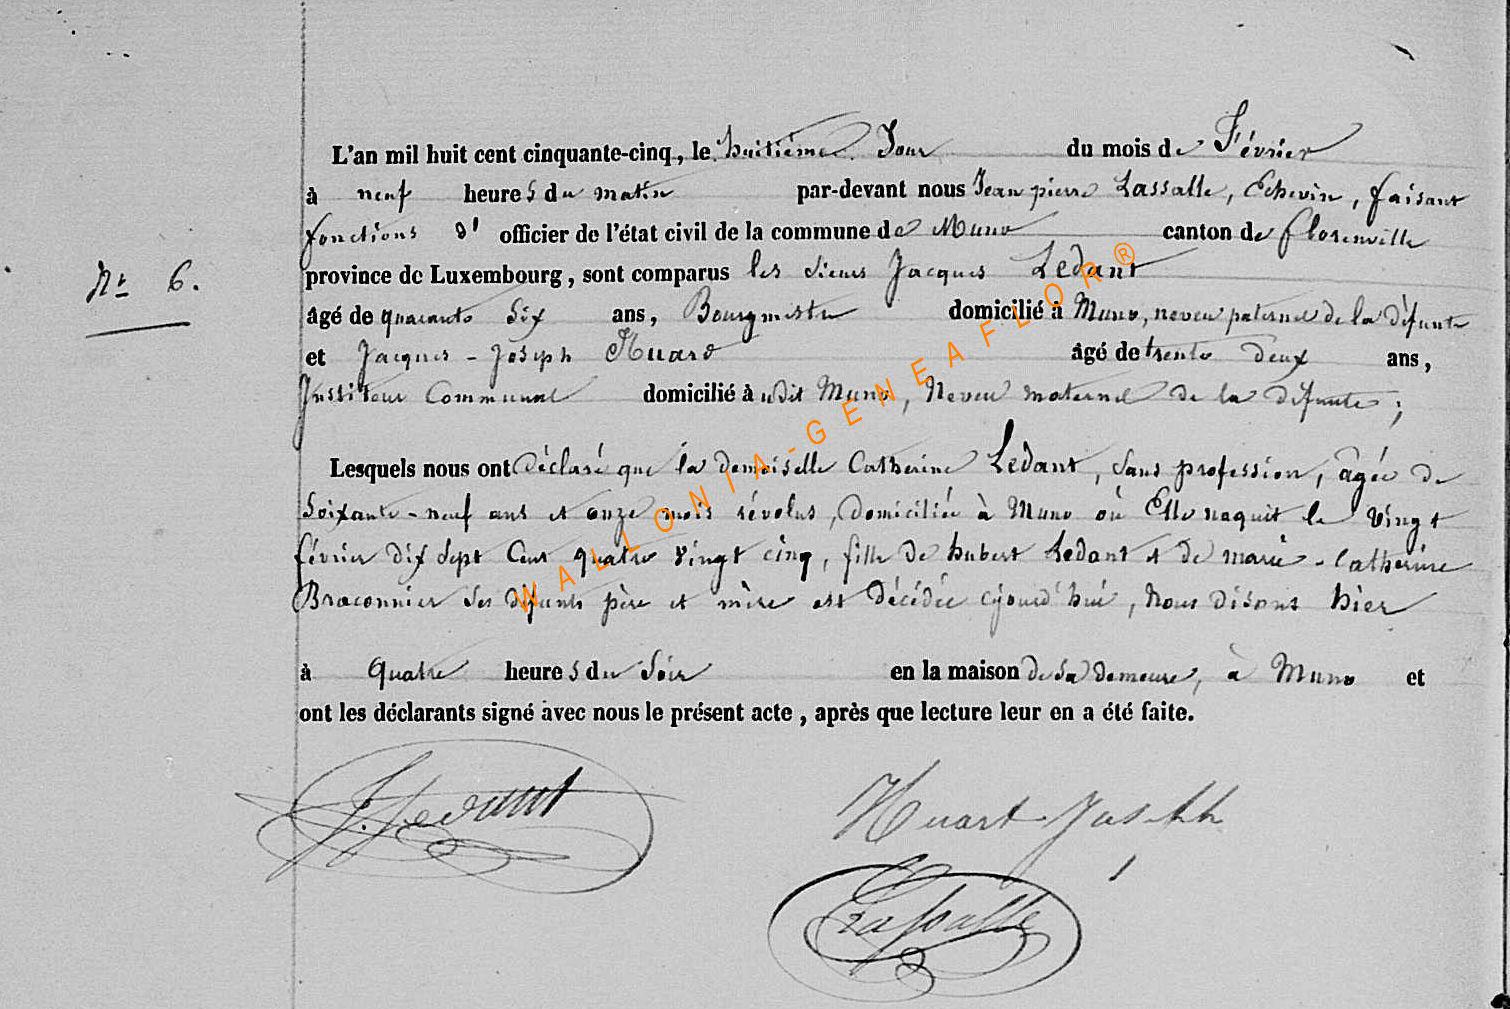 L'an mil huit cent cinquante-cinq, le huitième Jour du mois de Février
à neuf heures du matin par-devant nous Jean pierre Lassalle, Echevin, faisant
fonctions d' officier de l'état civil de la commune de Muno canton de florenville
N° 6.
province de Luxembourg, sont comparus les sieurs Jacques Ledant
âgé de quarante Six ans, Bourgmestre domicilié à Muno, neveu paternel de la défunte
et Jacques-Joseph Huard âgé de trente deux ans,
Instituteur Communal domicilié à udit Muno, Neveu maternel de la défunte;
Lesquels nous ont déclaré que la demoiselle Catherine Ledant, sans profession, âgée de
Soixante-neuf ans et onze mois révolus, domiciliée à Muno où Elle naquit le vingt
février dix sept Cent quatre vingt cinq, fille de hubert Ledant et de marie-Catherine
Braconnier ses défunts père et mère est décédée cejourd'hui, Nous disons hier
à quatre heures du Soir en la maison de sa demeure, à Muno et
ont les déclarants signé avec nous le présent acte, après que lecture leur en a été faite.
J. Ledant
Huart Joseph
Lassalle
WALLONIA-GENEAFLOR®